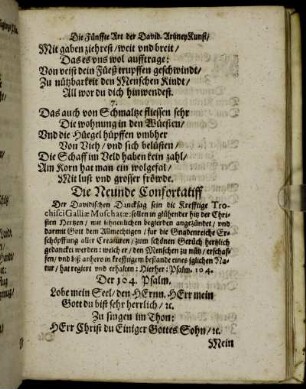 Die Fünffte Art der David. Artzney Kunst/
Mit gaben ziehrest/weit vnd breit/
Das es vns wol aufftrage:
Von deiß dein Füeß trupffen geschwindt/
Zu nützbarkeit den Menschen Kindt/
All wor du dich hinwendest.
7.
Das auch von Schmaltze fliessen sehr
Die wohnung in den Wüesten/
Vnd die Hüegel hüpffen vmbher
Von Vieh/ vnd sich belüsten/
Die Schaff im Veld haben kein zahl/
Am Korn hat man ein wolgefal/
Mit lust vnd grosser fröwde.
Die Neunde Confortatiff
Der Davidischen Dancksag sein die Krefftige Tro-
chisci Galliæ Muschatæ: sollen in glühender hitz der Chris-
sten Hertzen/ mit inbrünstlichen begierden angezündet/ vnd
darmit Gott dem Allmechtigen/ für die Gnadenreiche Er-
schöpffung aller Creaturen/ zum schönen Geruch hertzlich
gedancket werden: welche er/ den Menschen zu nutz/ erschaf-
fen/ vnd biß anhero in krefftigem bestande eines jglichen Na-
tur/ hat regiert vnd erhalten: Hierher: Psalm. 104.
Der 104. Psalm.
Lobe mein Seel/ den HErrn. HErr mein
Gott du bist sehr herrlich/ ꝛc.
Zu singen im Thon:
HErr Christ du Einiger Gottes Sohn/ ꝛc.
Mein